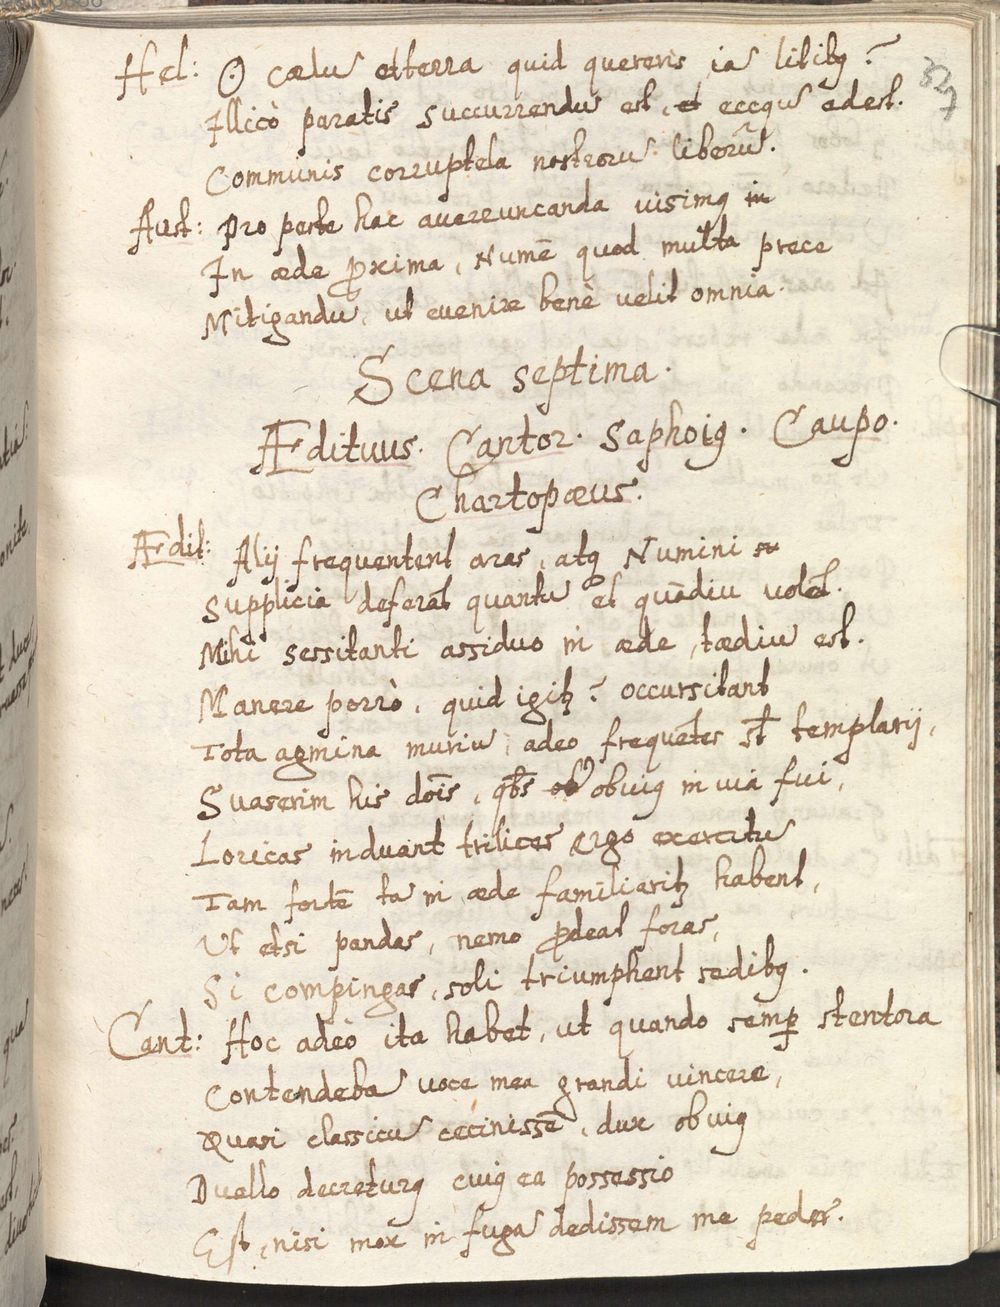 Hel: O cœlū et terra quid quereris iā litibꝫ?
Illicò paratis succurrendū est, et eccqū adest.
Communis corruptela nostrorū liberū.
Aust: Pro peste hac auereruncanda uisimꝰ in
In æde ꝓxima, Numē quod multa prece
Mitigandū, ut euenire benè uelit omnia.
Scena septima.
Ædituus. Cantor. Saphoiꝰ. Caupo.
Chartopœus.
Ædit: Alij frequentent aras, atqꝫ Numini su
Supplicia deferāt quantū et quādiu volēt.
Mihi sessitanti assiduo in æde, tædiū est.
Manere porrò, quid igitꝛ? occursitant
Tota agmina muriū, adeo frequētes sūt templarij,
Suaserim his doīs, qbꝰs ob obuiꝰ in uia fui,
Loricas induant trilices ergo exercitū
Tam fortē tā in æde familiaritꝛ habent,
Ut etsi pandas, nemo ꝓdeat foras,
Si compingas, soli triumphent sedibꝫ.
Cant: Hoc adeò ita habet, ut quando semꝑ stentora
Contendebā uoce mea grandi uincere,
Quasi classicū cecinissē, dux obuiꝰ
Duello decreturꝰ cuiꝰ ea possessio
Est, nisi mox in fugā dedissem me pedes.